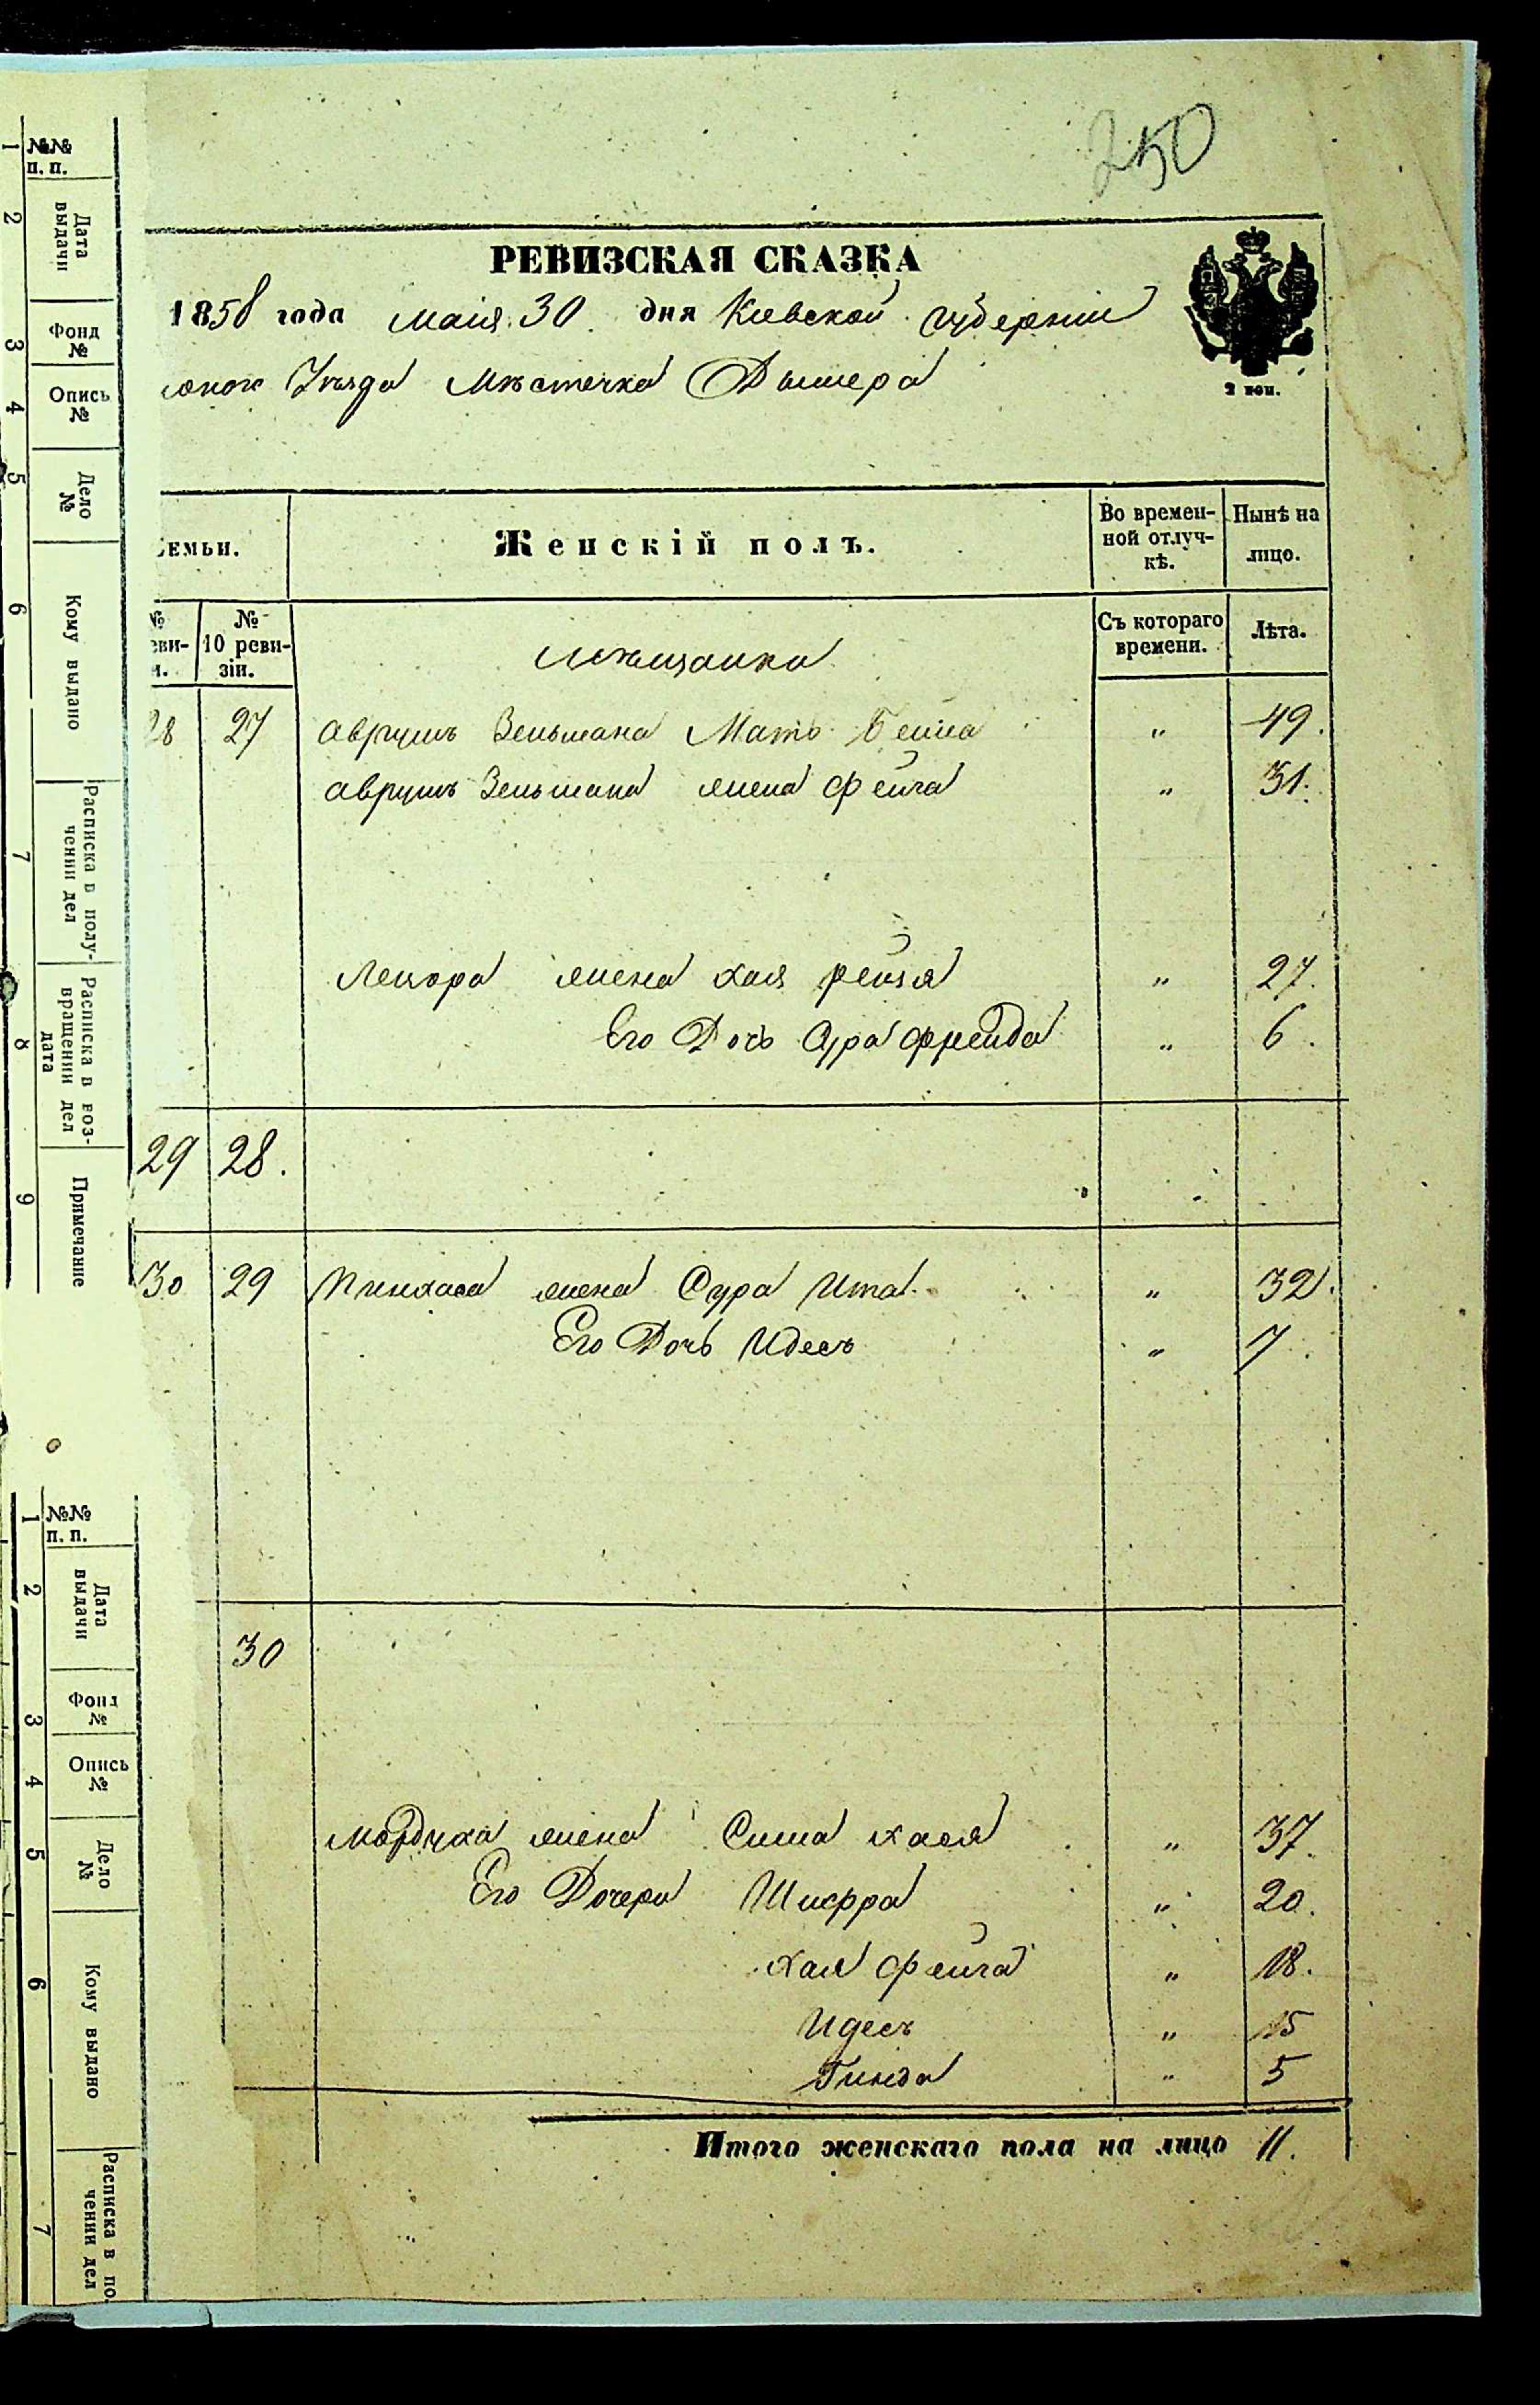 250
РЕВИЗСКАЯ СКАЗКА
1858 года маія 30 дня Киевской губерніи
Уѣзда Мѣстечка Дымера
2 коп.
СЕМЬИ.
Женскій полъ.
Во времен-
ной отлуч-
кѣ.
Нынѣ на
лицо.
№
еви-
№
10 реви-
зіи.
Съ котораго
времени.
Лѣта.
28 27 Аврумъ Зельмана Мать " 49.
Аврумъ Зельмана жена Фейга " 31.
жена Хая рейзя " 27.
Его Дочь Сура фрейда " 6.
29 28.
30 29 Пинхаса жена Сура Ита " 32.
Его Дочь Идесъ " 7.
30
Мордука жена Сима хася " 37.
Его Дочери Шифра " 20.
Хая фейга " 18.
Идесъ " 15
Гинда " 5
Итого женскаго пола на лицо 11.
1 №№ п. п.
2 Дата выдачи
3 Фонд №
4 Опись №
5 Дело №
6 Кому выдано
7 Расписка в полу-
чении дел
8 Расписка в воз-
вращении дел
дата
9 Примечание
1 №№ п. п.
2 Дата выдачи
3 Фонд №
4 Опись №
5 Дело №
6 Кому выдано
7 Расписка в по
чении дел